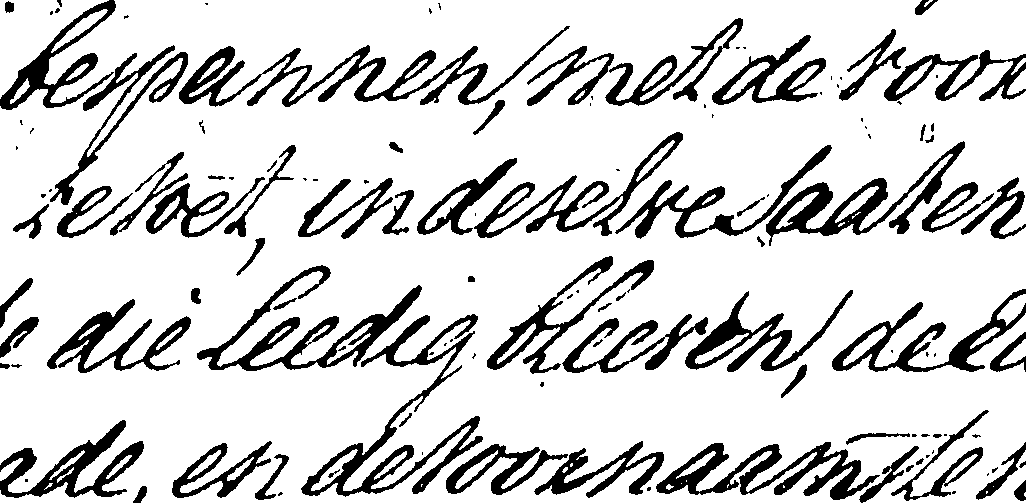 bespannen, met de voor
te voet, in deselve saaken
die Leedig bleeven, de Ed
ade, en de voornaamste